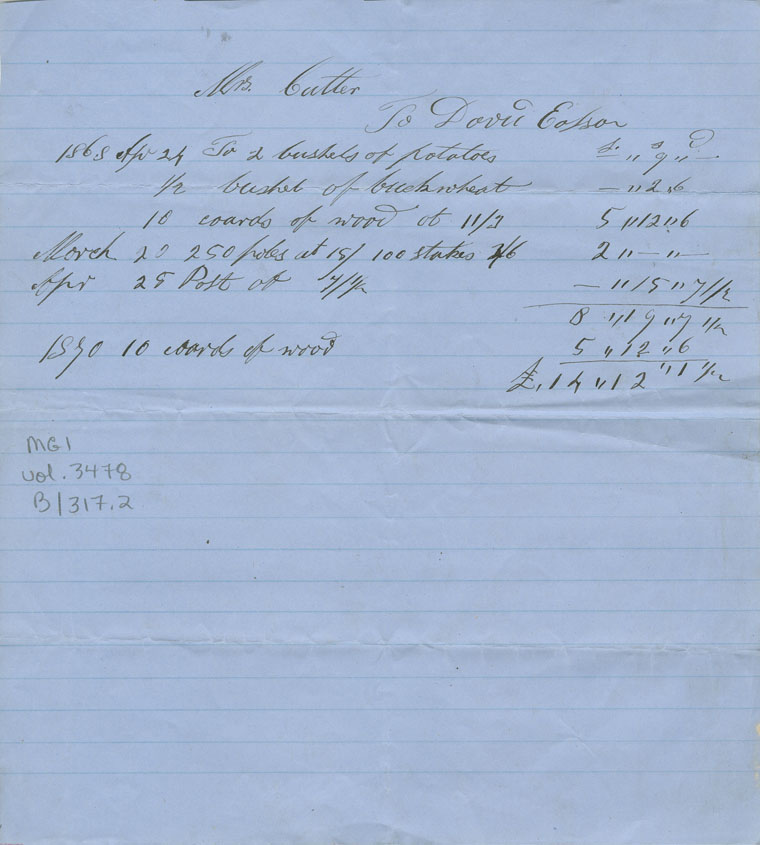 Mrs. Cutter
To David Eason
£ s d
1868 Apr 24 To 2 bushels of potatoes — " 9 " —
1/2 bushel of buckwheat — " 2 " 6
10 coards of wood at 11/3 5 " 12 " 6
March 20 250 poles at 15/ 100 stakes 2/6 2 " — " —
Apr 25 Post at 7/1/2 — " 15 " 7 1/2
8 " 19 " 7 1/2
1870 10 coards of wood 5 " 12 " 6
£. 14 " 12 " 1 1/2
MG1
vol. 3478
B/317.2